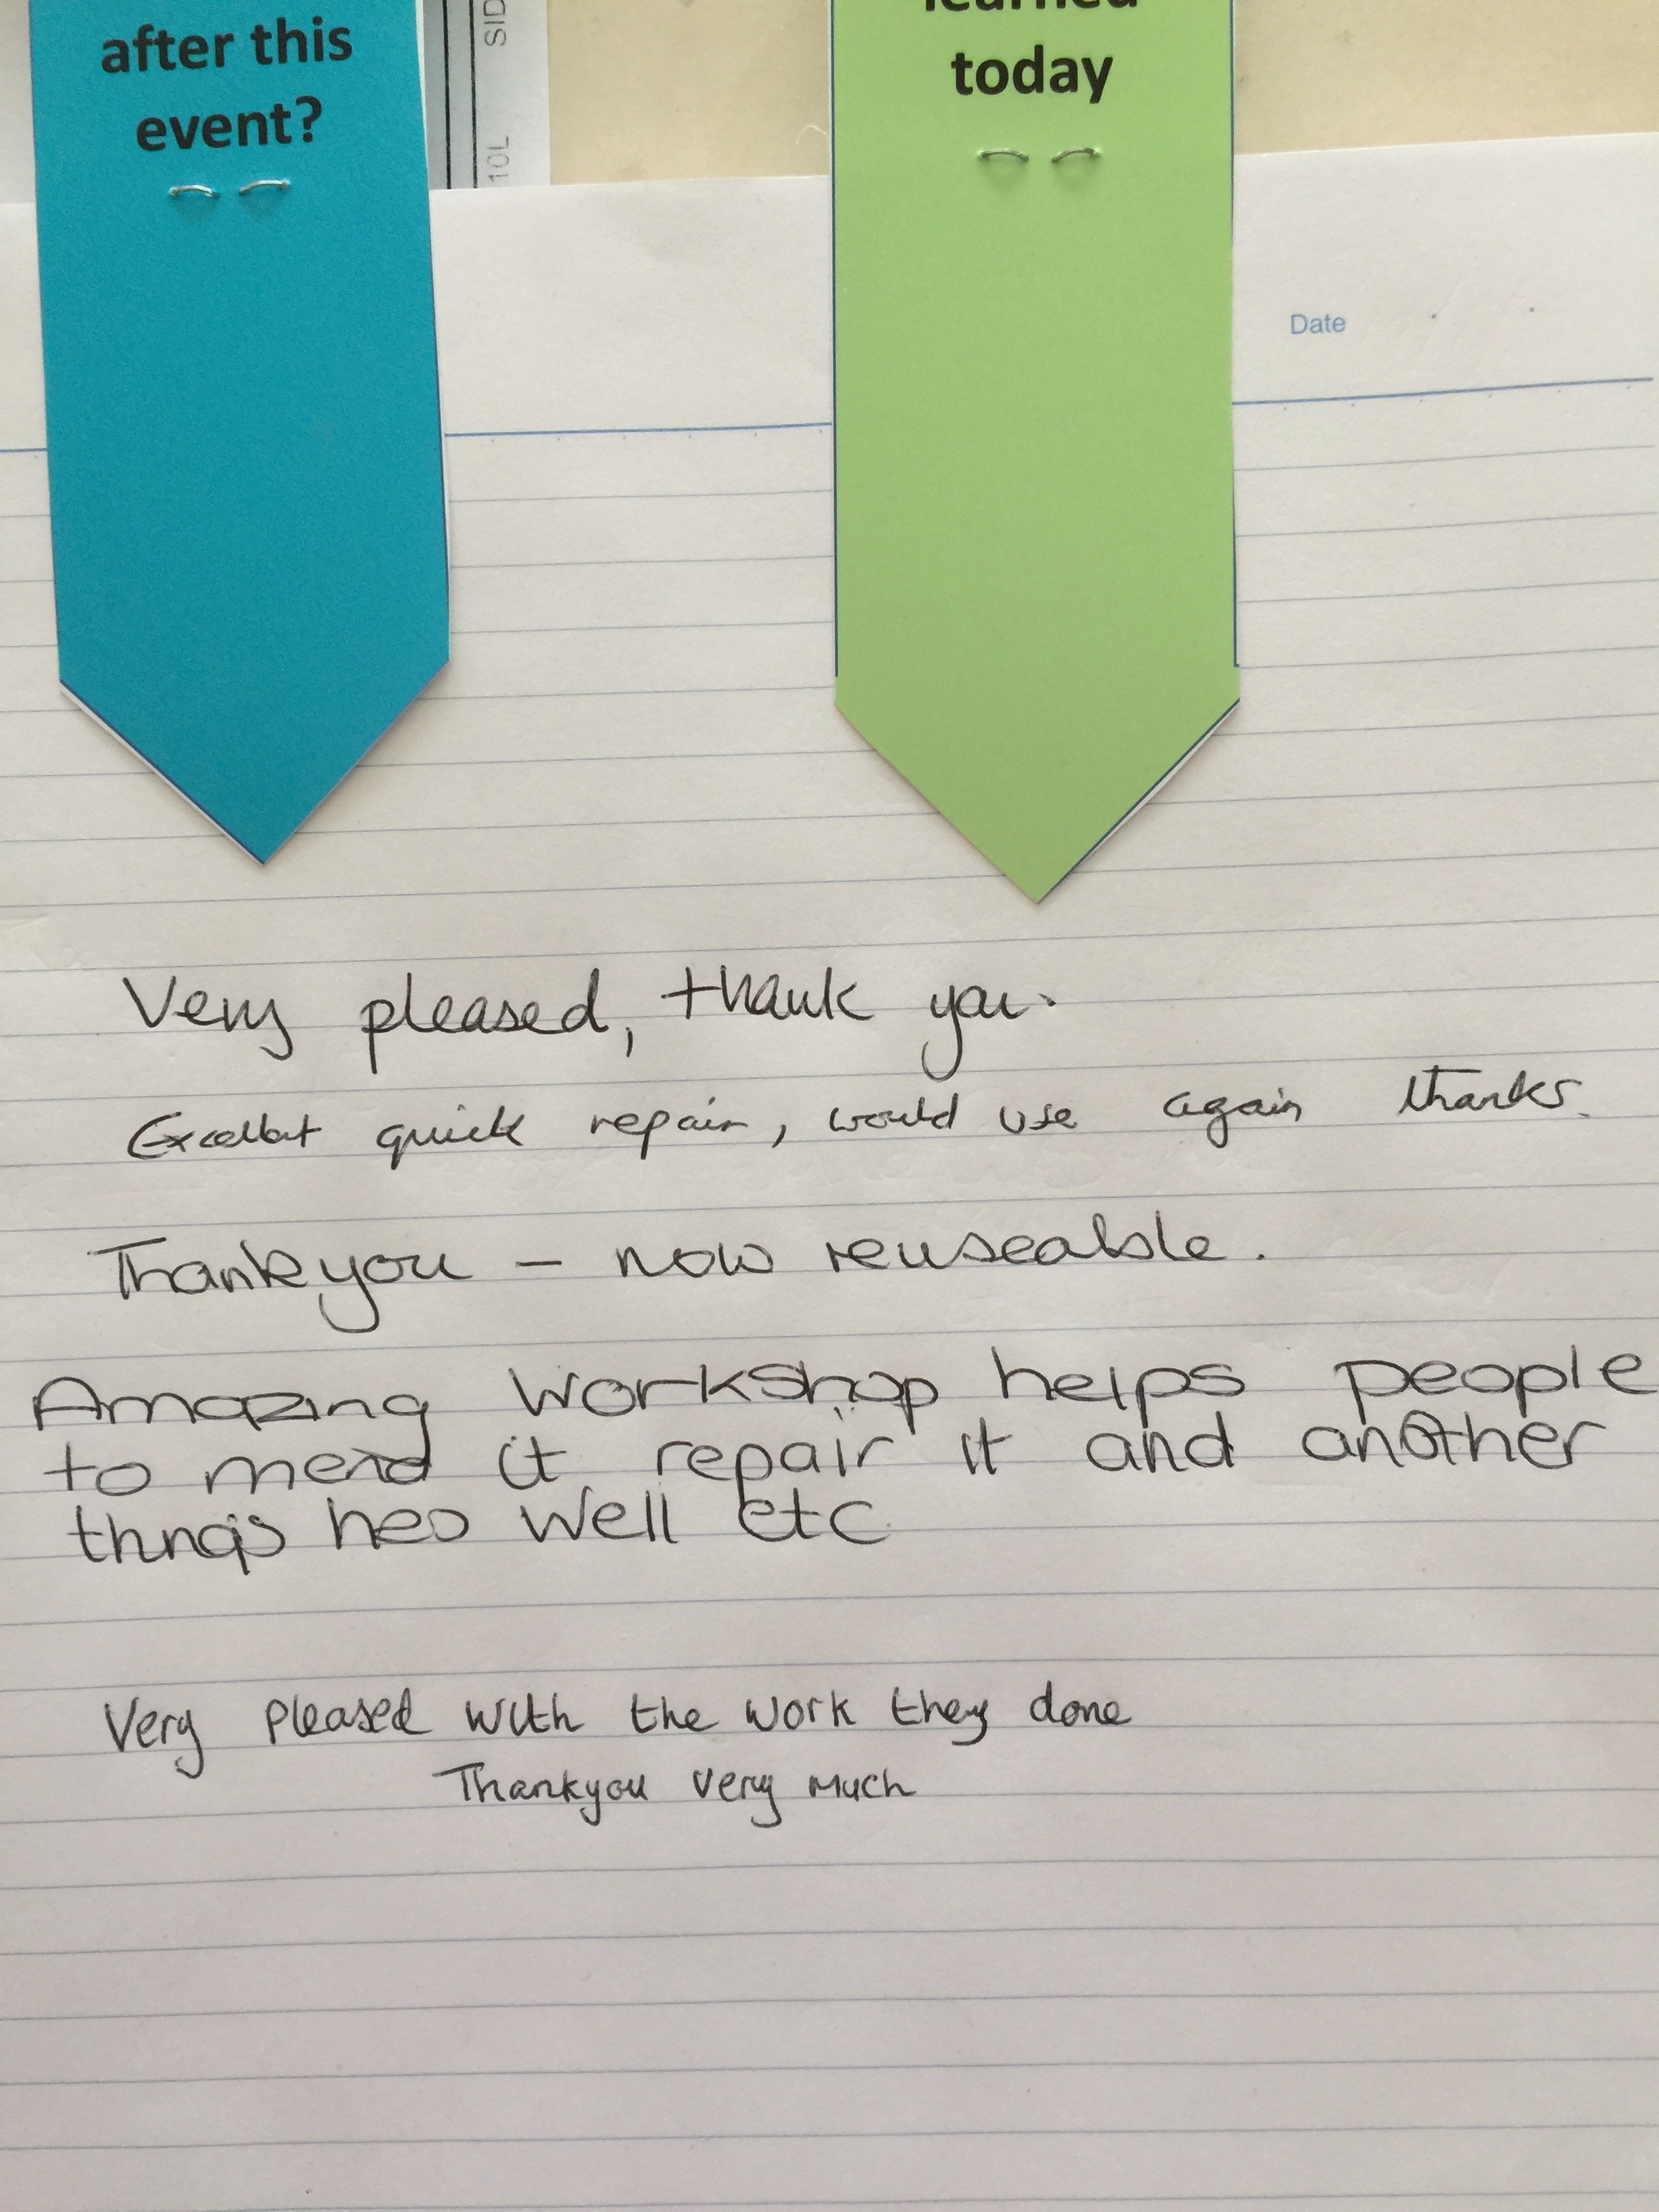 after this
event?
SID
10L
learned
today
Date
Very pleased, thank you.
Excellent quick repair, would use again thanks.
Thankyou – now reuseable.
Amazing workshop helps people
to mend it repair it and another
things heo well etc
Very pleased with the work they done
Thankyou very much